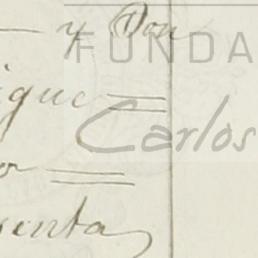 y Don
FUNDA
igue
Carlos
or
senta